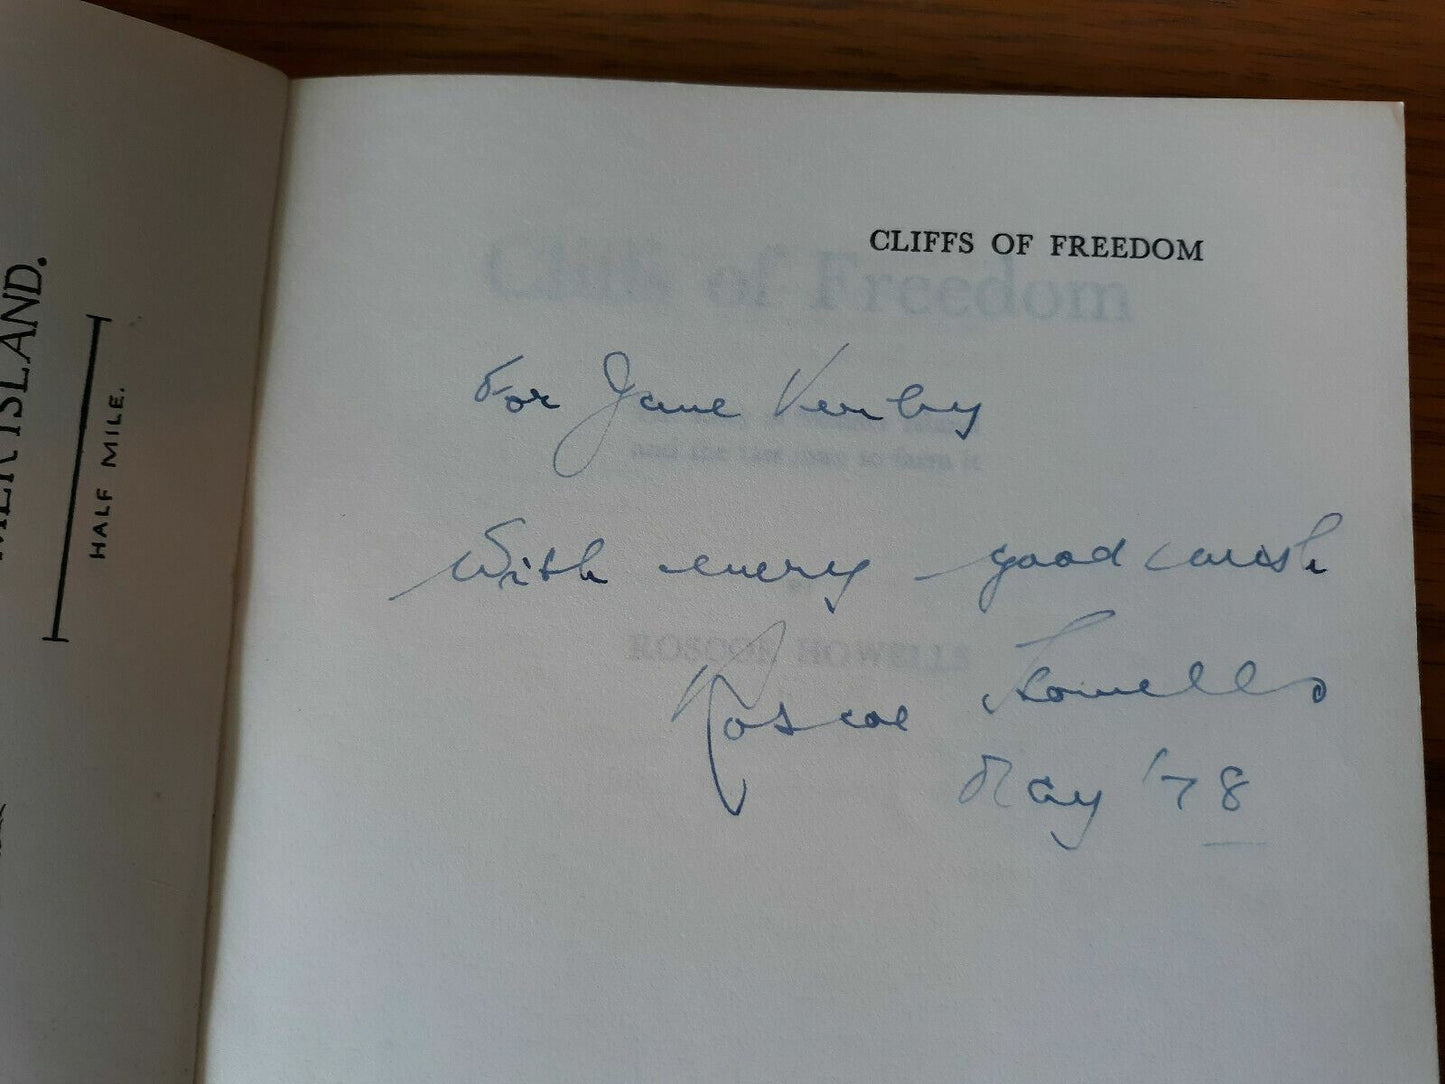 ISLAND.
HALF MILE.
CLIFFS OF FREEDOM
Cliffs of Freedom
For Jane
and the last man to farm it
With every good wish
ROSCOE HOWELLS
Roscoe Howells
May '78